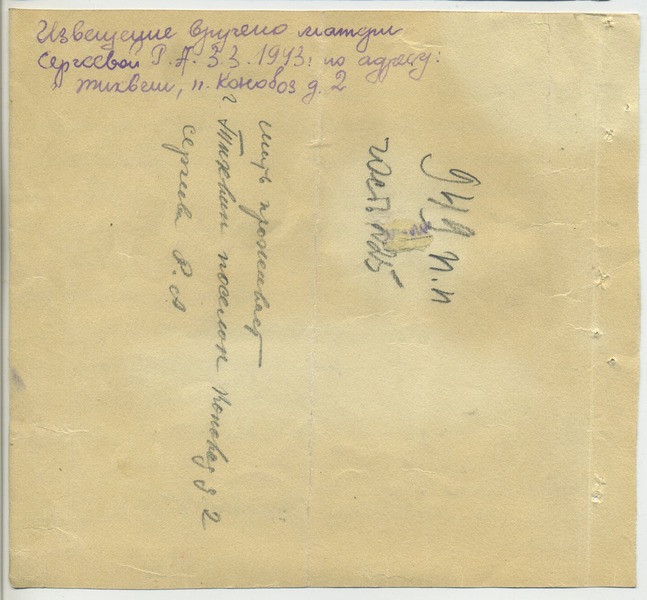 Извещение вручено матери
Сергеевой Р. А. 3.3.1943г по адресу:
г Тихвин, п. Коновоз д. 2
мать проживает
г Тихвин поселок Коновоз д 2
сергеева Р. А
п.п
гост